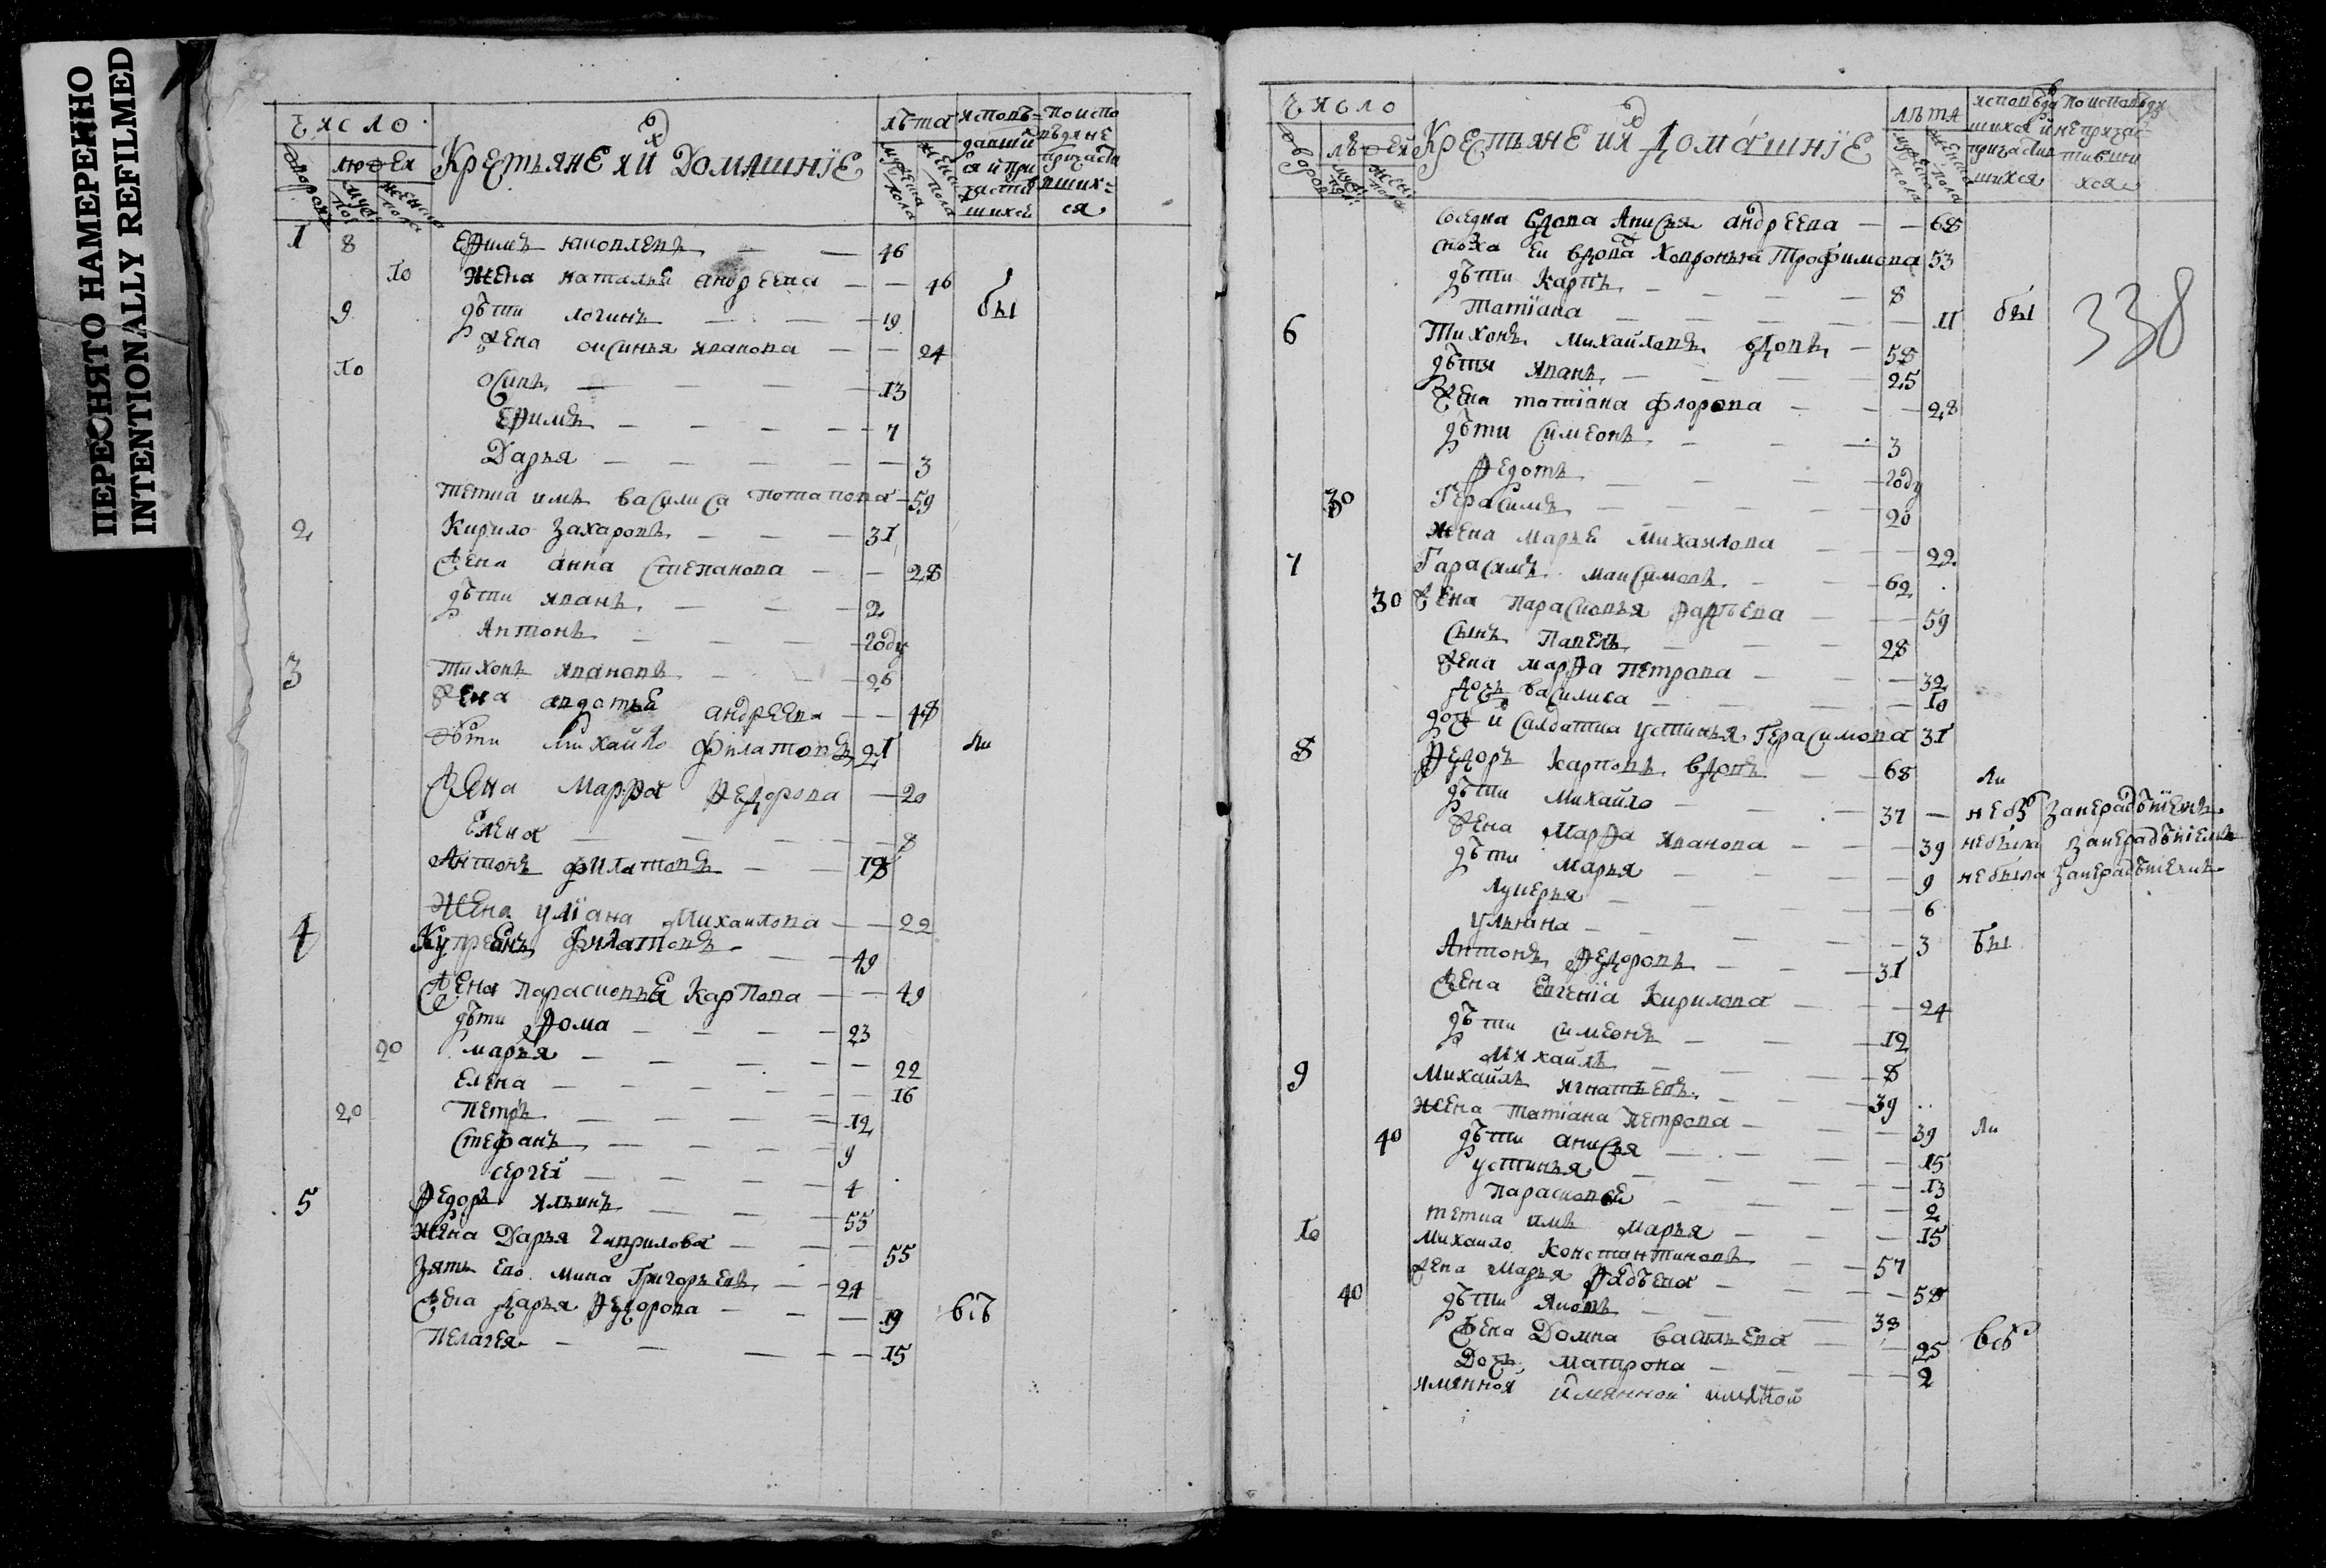 ПЕРЕСНЯТО НАМЕРЕННО
INTENTIONALLY REFILMED
Число
дворовъ
людей
муск: пол
женска пола
Крестьяне и ихъ Домашнїе
лѣта
мужеска пола
женска пола
исповѣ-
давши
ся и при
частив
шихся
по испо
вѣди не
причасти
вших-
ся
1 8 Ефимъ Яковлевъ — — 46
10 Жена Наталья Андреева — — 46
9 дѣти Логинъ — — — 19 бы
Жена Оксинья Иванова — — 24
10 Осипъ — — — 13
Ефимъ — — — — 7
Дарья — — — — 3
тетка имъ Василиса Потапова — 59
2 Кирило Захаровъ — — — 31
Жена Анна Степанова — — 28
дѣти Иванъ — — — 2
Антонъ — — — году
3 Тихонъ Ивановъ — — — 26
Жена Авдотья Андреева — — 48
Дѣти Михайло Филатовъ 21 ли
Жена Марфа Федорова — 20
Елена — — — — 8
Антонъ Филатовъ — — 18
Жена Улїана Михаилова — — 22
4 Купреянъ Филатовъ — — 49
Жена Парасковья Карпова — — 49
дѣти Фома — — — — 23
20 Марья — — — — — 22
Елена — — — — — 16
20 Петръ — — — — 12
Стефанъ — — — — 9
Сергей — — — — 4
5 Федоръ Ильинъ — — — 55
Жена Дарья Гаврилова — — — 55
Зять ево Мина Григорьевъ — — 24
Жена Дарья Федорова — — — 19 всѣ
Пелагея — — — — — 15
Число
дворов
людей
муск: пол:
женс: пола
Крестьяне и ихъ Домашнїе
лѣта
мужеска пола
женска пола
исповѣдав
шихся и
причастив
шихся
по исповѣди
не причас-
тивши
хся
соседка вдова Анисья Андреева — — 68
сноха ей вдова Ховронья Трофимова 53
дѣти Карпъ — — — — 8
Татїана — — — — — 11 бы
338
6 Тихонъ Михайловъ вдовъ — 58
дѣти Иванъ — — — 25
Жена Татїана Флорова — — — 28
дѣти Симеонъ — — — 3
Федотъ — — — году
30 Герасимъ — — — — 20
Жена Марья Михаилова — — — 22
7 Гарасимъ Максимовъ — — — 62
30 Жена Парасковья Фадѣева — — — 59
сынъ Павелъ — — — 28
Жена Марфа Петрова — — — 32
дочь Василиса — — — — 10
дочь и салдатка Устинья Герасимова 31
8 Федоръ Карповъ вдовъ — — 68 ли
дѣти Михайло — — — 37 — небы За нерадѣнїемъ
Жена Марфа Иванова — — — 39 небыла за нерадѣнїемъ
дѣти Марья — — — — 9 небыла за нерадѣнїемъ
Лукерья — — — — 6
Ульяна — — — — 3 бы
Антонъ Федоровъ — — — 31
Жена Евгенїа Кирилова — — — 24
дѣти Симеонъ — — — 12
Михайлъ — — — — 8
9 Михайлъ Игнатьевъ — — — 39
Жена Татїана Петрова — — — 39 ли
40 дѣти Анисья — — — — 15
Устинья — — — — 13
Парасковья — — — — 2
тетка имъ Марья — — — 15
10 Михаило Константиновъ — — 57
Жена Марья Фадѣева — — — 58
40 дѣти Яковъ — — — — 33
Жена Домна Васильева — — 25 всѣ
Дочь Матрона — — — 2
имянной имянной имяной